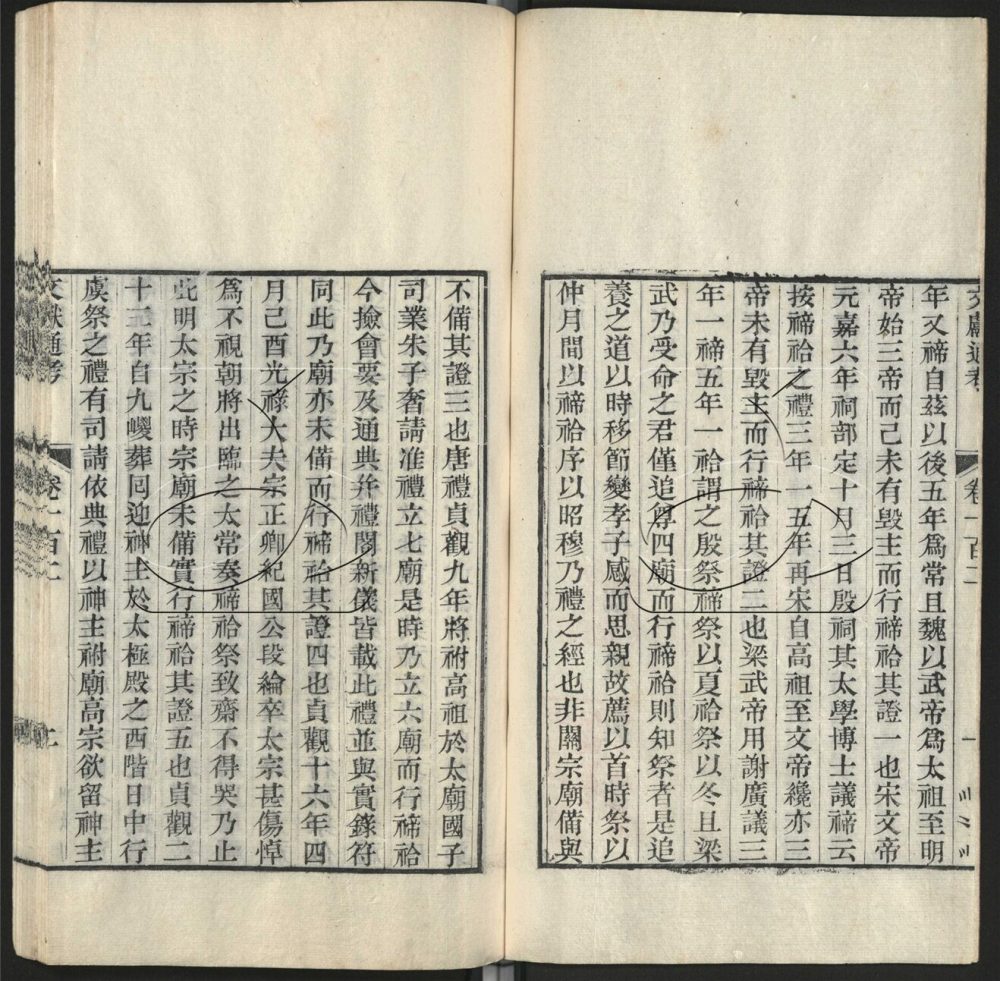 文獻通考 卷一百二
年又禘自茲以後五年爲常且魏以武帝爲太祖至明
帝始三帝而已未有毀主而行禘祫其證一也宋文帝
元嘉六年祠部定十月三日殷祠其太學博士議禘云
按禘祫之禮三年一五年再宋自高祖至文帝纔亦三
帝未有毀主而行禘祫其證二也梁武帝用謝廣議三
年一禘五年一祫謂之殷祭禘祭以夏祫祭以冬且梁
武乃受命之君僅追尊四廟而行禘祫則知祭者是追
養之道以時移節變孝子感而思親故薦以首時祭以
仲月間以禘祫序以昭穆乃禮之經也非關宗廟備與
不備其證三也唐禮貞觀九年將祔高祖於太廟國子
司業朱子奢請准禮立七廟是時乃立六廟而行禘祫
今撿會要及通典幷禮閣新儀皆載此禮並與實錄符
同此乃廟亦未備而行禘祫其證四也貞觀十六年四
月己酉光祿大夫宗正卿紀國公段綸卒太宗甚傷悼
爲不視朝將出臨之太常奏禘祫祭致齋不得哭乃止
此明太宗之時宗廟未備實行禘祫其證五也貞觀二
十三年自九嵕葬回迎神主於太極殿之西階日中行
虞祭之禮有司請依典禮以神主祔廟高宗欲留神主
文獻通考 卷一百二